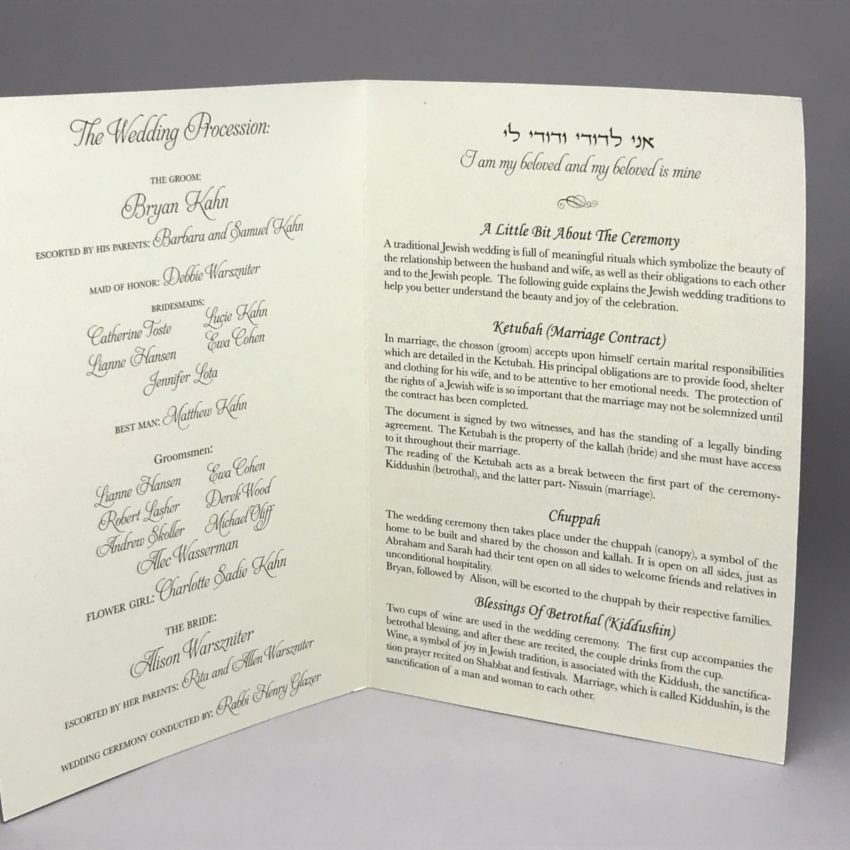 The Wedding Procession:
THE GROOM:
Bryan Kahn
ESCORTED BY HIS PARENTS: Barbara and Samuel Kahn
MAID OF HONOR: Debbie Warszniter
BRIDESMAIDS:
Catherine Toste Lucie Kahn
Lianne Hansen Ewa Cohen
Jennifer Lota
BEST MAN: Matthew Kahn
Groomsmen:
Lianne Hansen Ewa Cohen
Robert Lasher Derek Wood
Andrew Skoller Michael Oliff
Alec Wasserman
FLOWER GIRL: Charlotte Sadie Kahn
THE BRIDE:
Alison Warszniter
ESCORTED BY HER PARENTS: Rita and Allen Warszniter
WEDDING CEREMONY CONDUCTED BY: Rabbi Henry Glazer
אני לדודי ודודי לי
I am my beloved and my beloved is mine
A Little Bit About The Ceremony
A traditional Jewish wedding is full of meaningful rituals which symbolize the beauty of
the relationship between the husband and wife, as well as their obligations to each other
and to the Jewish people. The following guide explains the Jewish wedding traditions to
help you better understand the beauty and joy of the celebration.
Ketubah (Marriage Contract)
In marriage, the chosson (groom) accepts upon himself certain marital responsibilities
which are detailed in the Ketubah. His principal obligations are to provide food, shelter
and clothing for his wife, and to be attentive to her emotional needs. The protection of
the rights of a Jewish wife is so important that the marriage may not be solemnized until
the contract has been completed.
The document is signed by two witnesses, and has the standing of a legally binding
agreement. The Ketubah is the property of the kallah (bride) and she must have access
to it throughout their marriage.
The reading of the Ketubah acts as a break between the first part of the ceremony-
Kiddushin (betrothal), and the latter part- Nissuin (marriage).
Chuppah
The wedding ceremony then takes place under the chuppah (canopy), a symbol of the
home to be built and shared by the chosson and kallah. It is open on all sides, just as
Abraham and Sarah had their tent open on all sides to welcome friends and relatives in
unconditional hospitality.
Bryan, followed by Alison, will be escorted to the chuppah by their respective families.
Blessings Of Betrothal (Kiddushin)
Two cups of wine are used in the wedding ceremony. The first cup accompanies the
betrothal blessing, and after these are recited, the couple drinks from the cup.
Wine, a symbol of joy in Jewish tradition, is associated with the Kiddush, the sanctifica-
tion prayer recited on Shabbat and festivals. Marriage, which is called Kiddushin, is the
sanctification of a man and woman to each other.